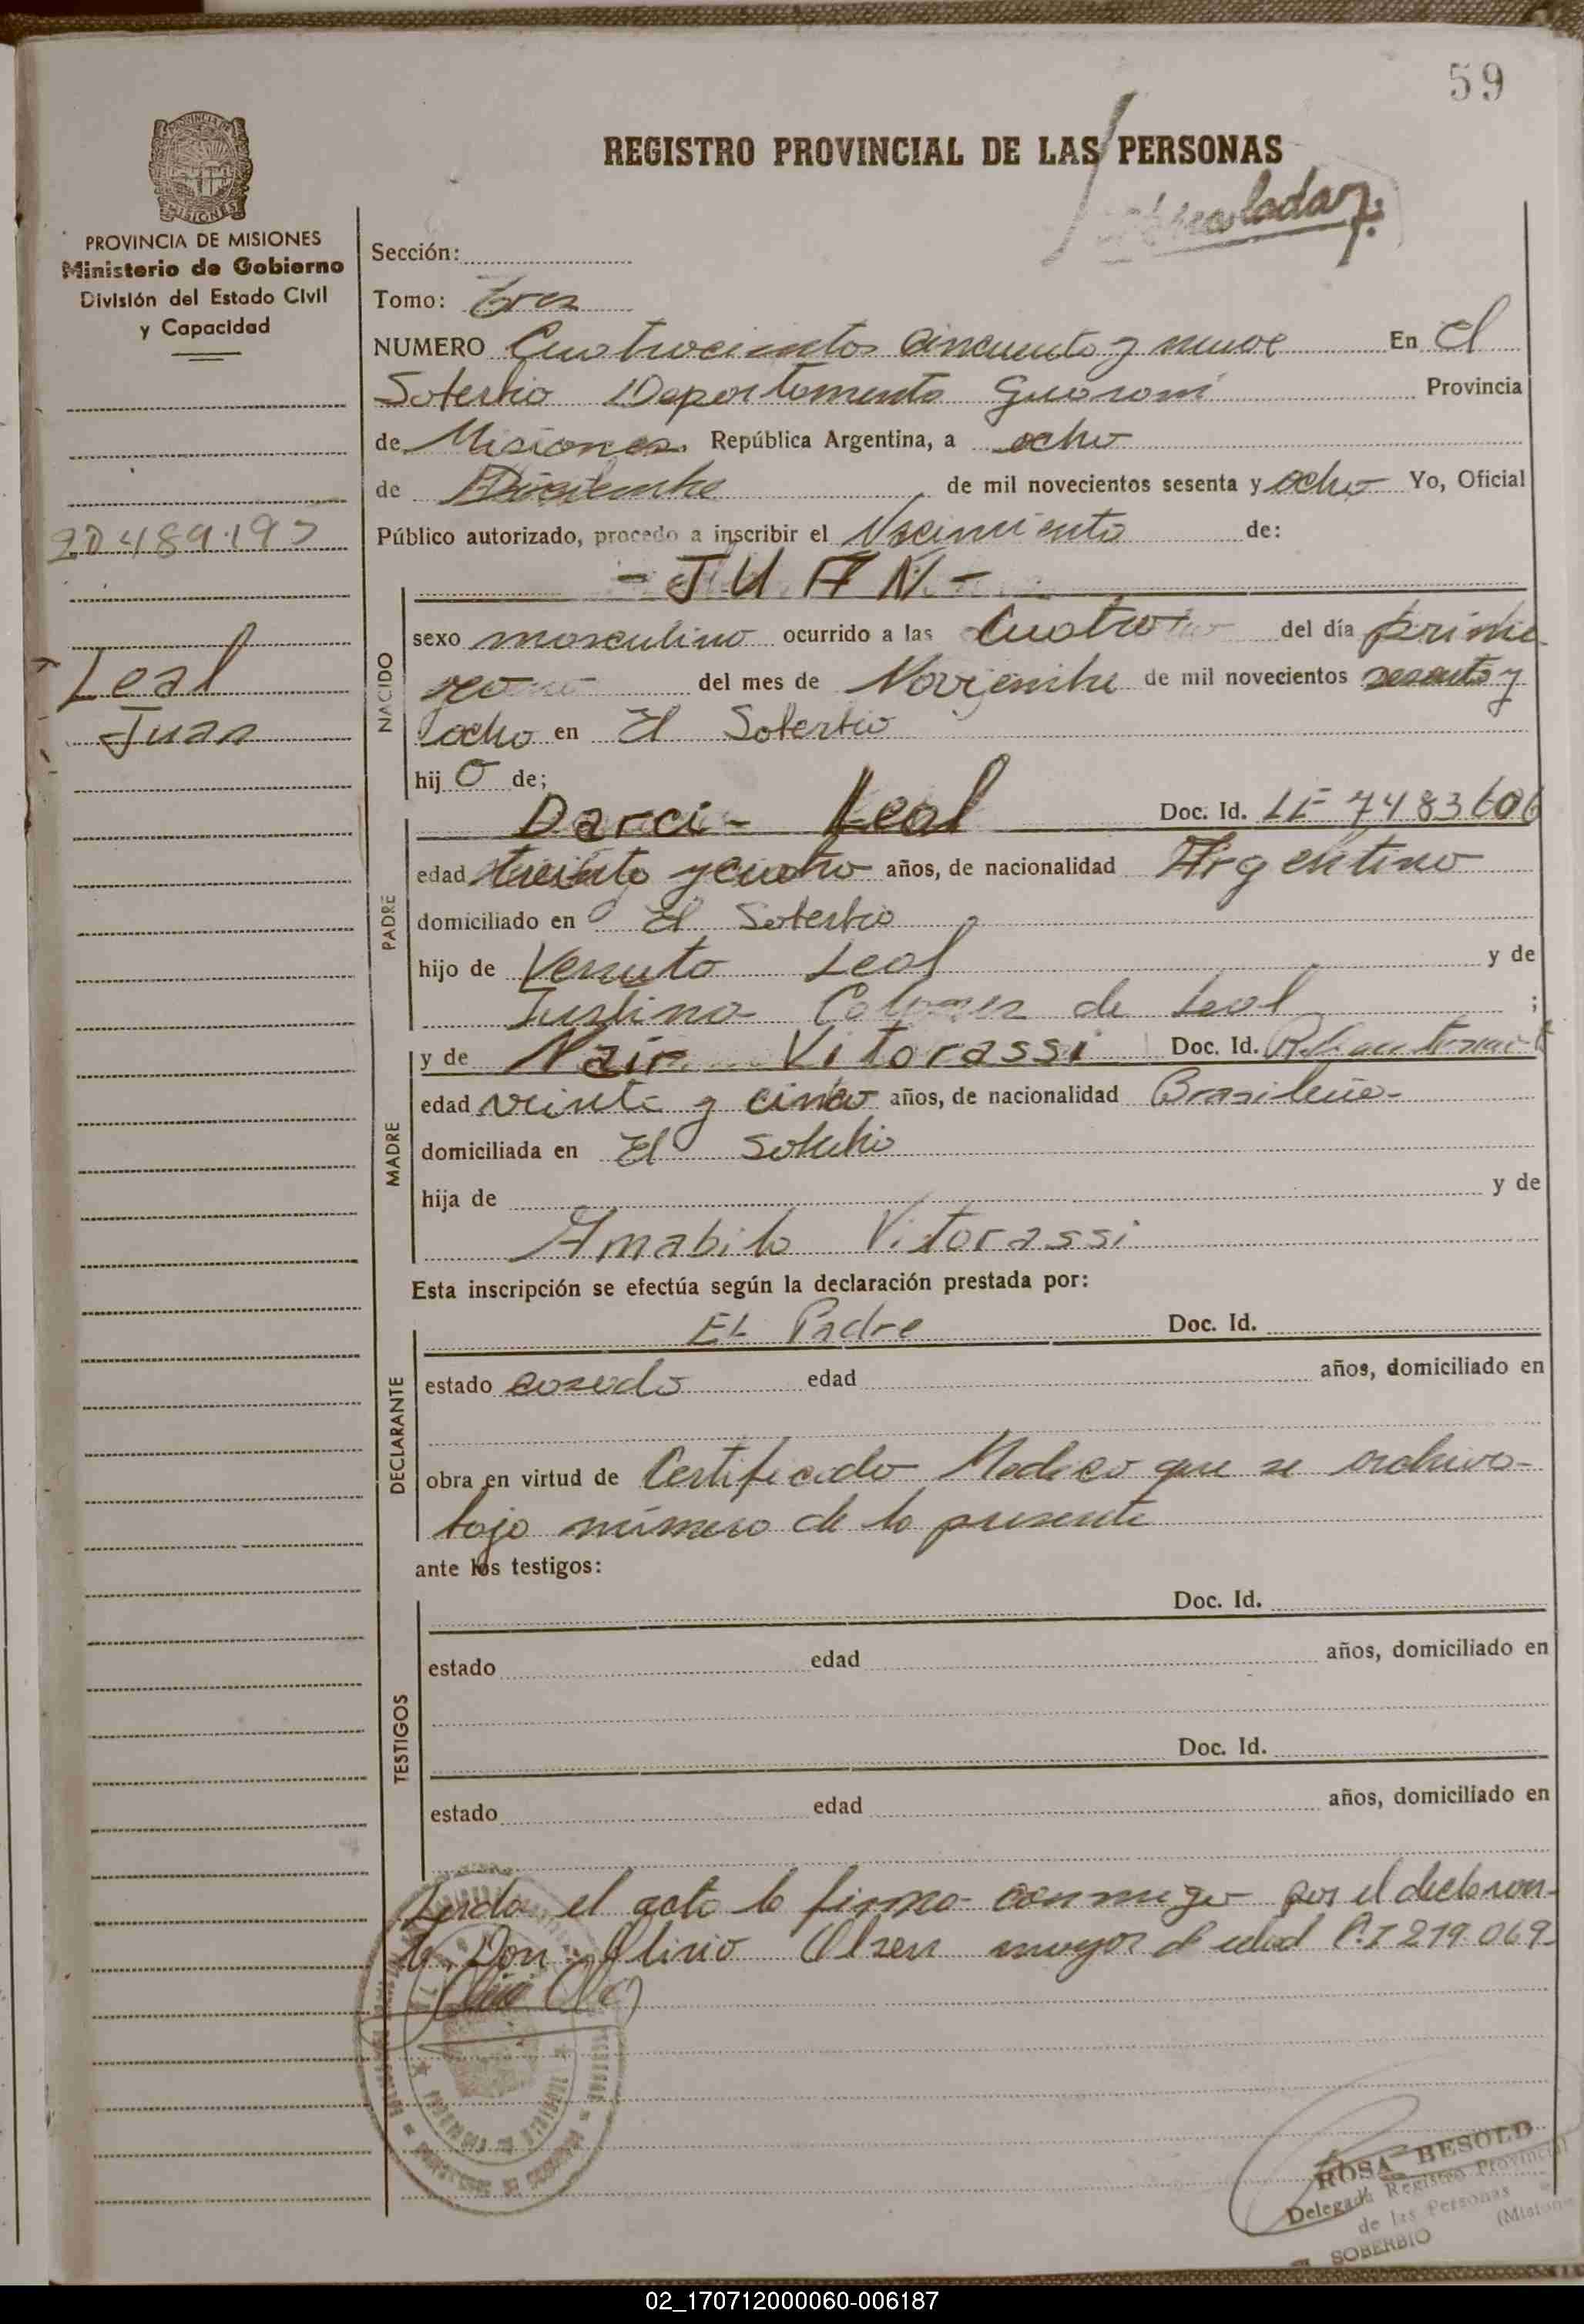 59
REGISTRO PROVINCIAL DE LAS PERSONAS
PROVINCIA DE MISIONES
Ministerio de Gobierno
División del Estado Civil
y Capacidad
20489.197
Leal
Juan
Sección:
Tomo: Tres
NUMERO Cuatrocientos Cincuenta y nueve En El
Soberbio Departamento Guaraní Provincia
de Misiones República Argentina, a ocho
de Diciembre de mil novecientos sesenta y ocho Yo, Oficial
Público autorizado, procedo a inscribir el Nacimiento de:
- JUAN -
NACIDO
sexo masculino ocurrido a las Cuatro del día prime-
ro del mes de Noviembre de mil novecientos sesenta y
ocho en El Soberbio
hijo de;
PADRE
Darci - Leal Doc. Id. LE 7483606
edad treinta y cuatro años, de nacionalidad Argentino
domiciliado en El Soberbio
hijo de Venuto Leal y de
Justina de Leal ;
MADRE
y de Nair Vitorassi Doc. Id.
edad veinte y cinco años, de nacionalidad Brasileña-
domiciliada en El Soberbio
hija de y de
Amabilo Vitorassi
Esta inscripción se efectúa según la declaración prestada por:
DECLARANTE
EL Padre Doc. Id.
estado casado edad años, domiciliado en
obra en virtud de Certificado Medico que se archiva-
bajo número de la presente
ante los testigos:
TESTIGOS
Doc. Id.
estado edad años, domiciliado en
Doc. Id.
estado edad años, domiciliado en
Leida el acta la firma conmigo por el declaran-
te Don: Olsen mayor de edad C.I 219.069
ROSA BESOLD
Delegada Registro Provincial
de las Personas
SOBERBIO (Misiones
02_170712000060-006187